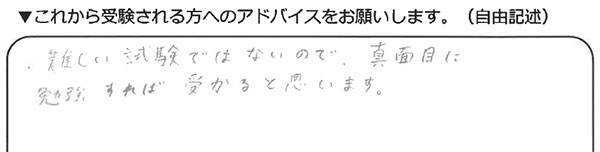 ▼これから受験される方へのアドバイスをお願いします。（自由記述）
・難しい試験ではないので、真面目に
勉強すれば受かると思います。